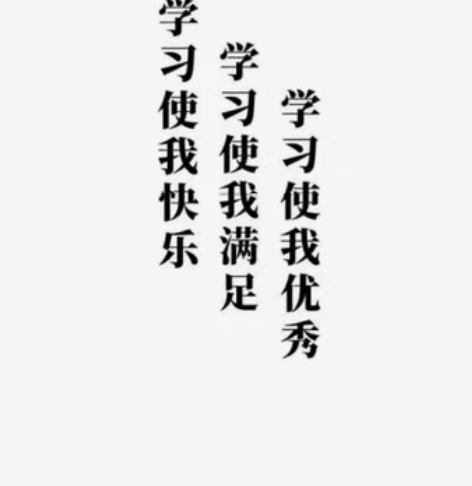 学习使我快乐
学习使我满足
学习使我优秀